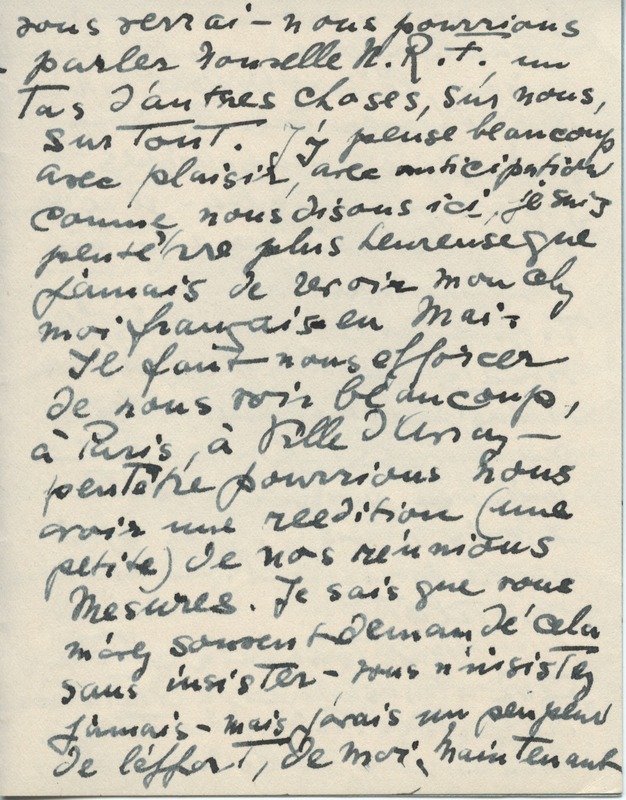 vous verrai – nous pourrions
parler nouvelle N.R.F., un
tas d'autres choses, sur nous,
sur tout. J'y pense beaucoup
avec plaisir, avec anticipation
comme nous disons ici, je suis
peutêtre plus heureuse que
jamais de revoir mon chez
moi français en Mai.
Il faut nous efforcer
de nous voir beaucoup,
à Paris, à Ville d'Avray –
peutêtre pourrions nous
avoir une reedition (une
petite) de nos réunions
Mesures. Je sais que vous
m'avez souvent demandé cela
sans insister – vous n'insistez
jamais – mais j'avais un peu peur
de l'effort, de moi, Maintenant